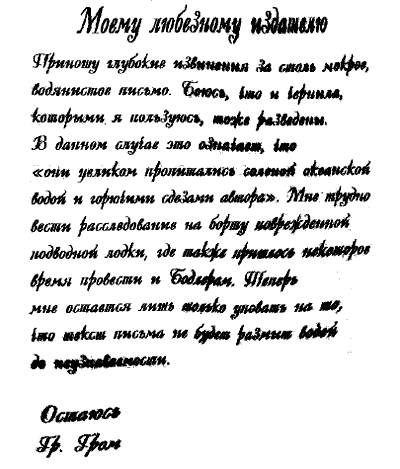 Моему любезному издателю
Приношу глубокие извинения за столь мокрое,
водянистое письмо. Боюсь, что и чернила,
которыми я пользуюсь, тоже разведены.
В данном случае это означает, что
«они целиком пропитались соленой океанской
водой и горючими слезами автора». Мне трудно
вести расследование на борту поврежденной
подводной лодки, где также пришлось некоторое
время провести и Бодлерам. Теперь
мне остается лишь только уповать на то,
что текст письма не будет размыт водой
до неузнаваемости.
Остаюсь
Гр. Гром